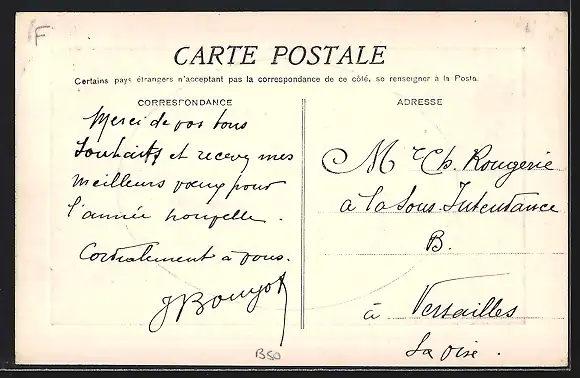 F
CARTE POSTALE
Certains pays étrangers n'acceptant pas la correspondance de ce côté, se renseigner à la Poste.
CORRESPONDANCE
Merci de vos bons
souhaits et recevez mes
meilleurs vœux pour
l'année nouvelle.
Cordialement à vous.
J Bougot
ADRESSE
M Ch. Rougerie
à la Sous Intendance
B.
à Versailles
S a Oise.
B50